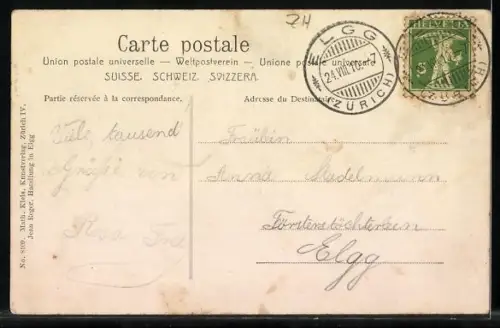 ZH
Carte postale
Union postale universelle — Weltpostverein — Unione postale universale
SUISSE. SCHWEIZ. SVIZZERA.
Partie réservée à la correspondance.
Adresse du Destinataire
ELGG
24.VIII.10.-7
(ZÜRICH)
HELVETIA
5
Viele tausend
Grüße von
Rosa
Fräulein
Anna Stadelmann
Försterstöchterlein
Elgg
No. 809. Math. Kleis, Kunstverlag, Zürich IV.
Jean Roger, Handlung in Elgg